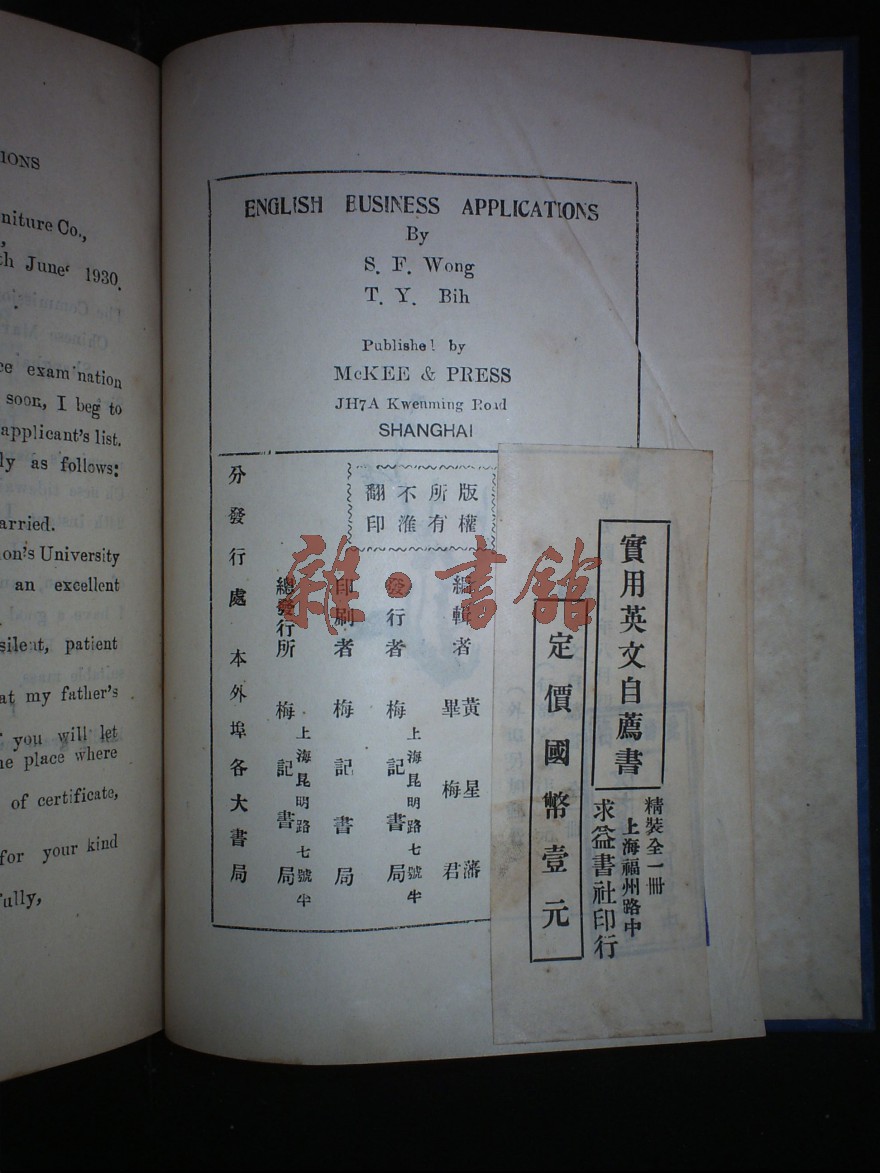 IONS
niture Co.,
th June‘ 1930.
ce exam nation
soon, I beg to
applicant's list.
ly as follows:
arried.
on's University
an excellent
silent, patient
at my father's
f you will let
he place where
of certificate,
for your kind
fully,
ENGLISH BUSINESS APPLICATIONS
By
S. F. Wong
T. Y. Bih
Publishe! by
McKEE & PRESS
JH7A Kwenming Road
SHANGHAI
實用英文自薦書
定價國幣壹元
精裝全一冊
上海福州路中
求益書社印行
版權
所有
不准
翻印
編輯者 黃星藩
畢梅君
發行者 梅記書局
上海昆明路七號半
印刷者 梅記書局
總發行所 梅記書局
上海昆明路七號半
分發行處 本外埠各大書局
雜·書館